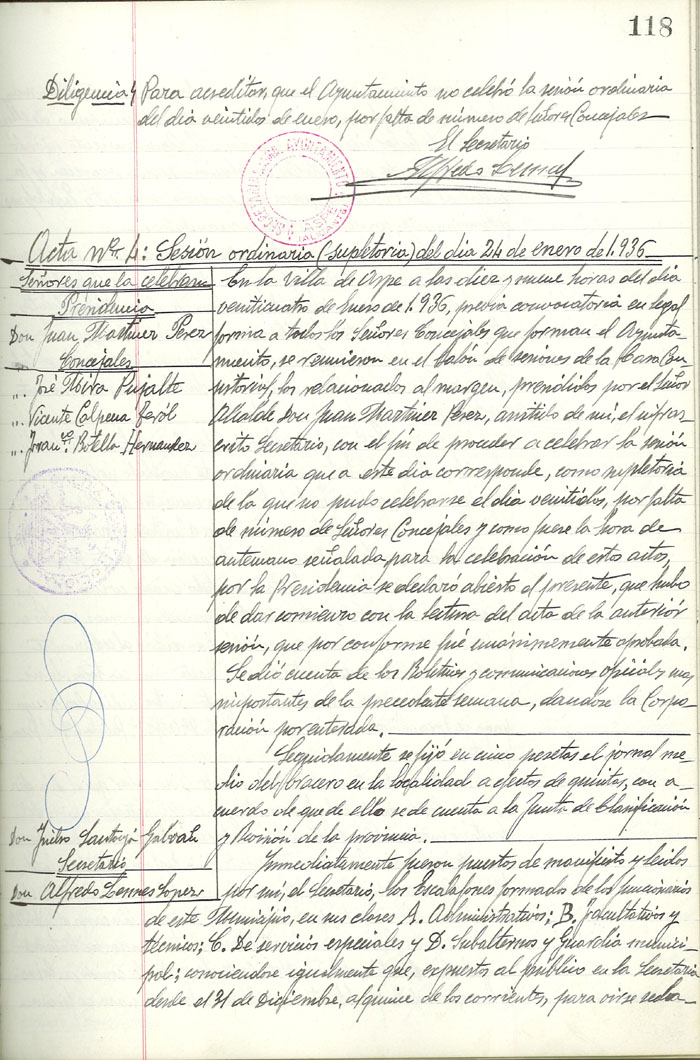 118
Diligencia Para acreditar, que el Ayuntamiento no celebró la sesión ordinaria
del dia veintidos de enero, por falta de número de Señores Concejales
El Secretario
Acta nº. 4: Sesión ordinaria (supletoria) del dia 24 de enero de 1.936
Señores que la celebran
Presidencia
Don Juan Martinez Perez
Concejales
".. José Mira Pujalte
".. Vicente Calpena
".. Franco. Botella Hernandez
Don Pedro
Secretario
Don Alfredo Lopez
En la Villa de Aspe a las diez y nueve horas del dia
venticuatro de Enero de 1.936, previa convocatoria en legal
forma a todos los Señores Concejales que forman el Ayunta-
miento, se reunieron en el Salón de sesiones de la Casa Con-
sistorial, los relacionados al margen, presididos por el Señor
Alcalde Don Juan Martinez Perez, asistido de mi, el infras-
crito Secretario, con el fin de proceder a celebrar la sesión
ordinaria que a este dia corresponde, como supletoria
de la que no pudo celebrarse el dia ventidos, por falta
de número de Señores Concejales y como fuese la hora de
antemano señalada para la celebración de estos actos,
por la Presidencia se declaró abierto el presente, que hubo
de dar comienzo con la lectura del acta de la anterior
sesión, que por conforme fué unánimemente aprobada.
Se dió cuenta de los Boletines y comunicaciones oficiales mas
importantes de la precedente semana, dandose la Corpo-
ración por enterada.
Seguidamente se fijó en cinco pesetas el jornal me-
dio del bracero en la localidad a efectos de quintas, con a-
cuerdo de que de ello se de cuenta a la Junta de Clasificación
y Revisión de la provincia.
Inmediatamente fueron puestos de manifiesto y leidos
por mi, el Secretario, los Escalafones formados de los funcionarios
de este Municipio, en sus clases A. Administrativos; B. Facultativos y
técnicos; C. De servicios especiales y D. Subalternos y Guardia munici-
pal; conociendose igualmente que, expuestos al público en la Secretaria
desde el 31 de Diciembre, al quince de los corrientes, para oirse recla-